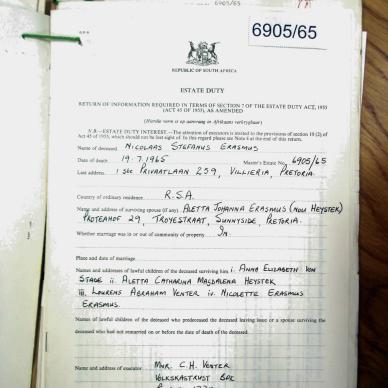 6905/65
6905/65
REPUBLIC OF SOUTH AFRICA
ESTATE DUTY
RETURN OF INFORMATION REQUIRED IN TERMS OF SECTION 7 OF THE ESTATE DUTY ACT, 1955
(ACT 45 OF 1955), AS AMENDED
(Hierdie vorm is op aanvraag in Afrikaans verkrygbaar)
N.B.—ESTATE DUTY INTEREST.—The attention of executors is invited to the provisions of section 10 (2) of
Act 45 of 1955, which should not be lost sight of. In this regard please see Note 6 at the end of this return.
Name of deceased NICOLAAS STEFANUS ERASMUS
Date of death 19.7.1965 Master's Estate No. 6905/65
Last address PRIVAATLAAN 259, VILLIERIA, PRETORIA.
Country of ordinary residence R.S.A.
Name and address of surviving spouse (if any) ALETTA JOHANNA ERASMUS (NOU HEYSTEK)
PROTEAHOF 29, TROYESTRAAT, SUNNYSIDE, PRETORIA.
Whether marriage was in or out of community of property In
Place and date of marriage
Names and addresses of lawful children of the deceased surviving him i. ANNA ELIZABETH VON
STADE ii. ALETTA CATHARINA MAGDALENA HEYSTEK
iii. LOURENS ABRAHAM VENTER iv. NICOLETTE ERASMUS
ERASMUS.
Names of lawful children of the deceased predeceased the deceased leaving issue or a spouse surviving the
deceased who had not remarried on or before the date of death of the deceased.
Name and address of executor MNR. C.H. VENTER
VOLKSKASTRUST BPK